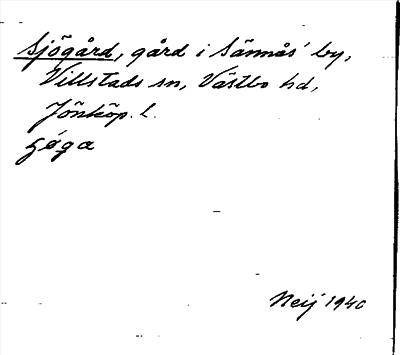 Sjögård, gård i Sännås' by,
Villstads sn, Västbo hd,
Jönköp. l.
ʢøga
Neij 1940